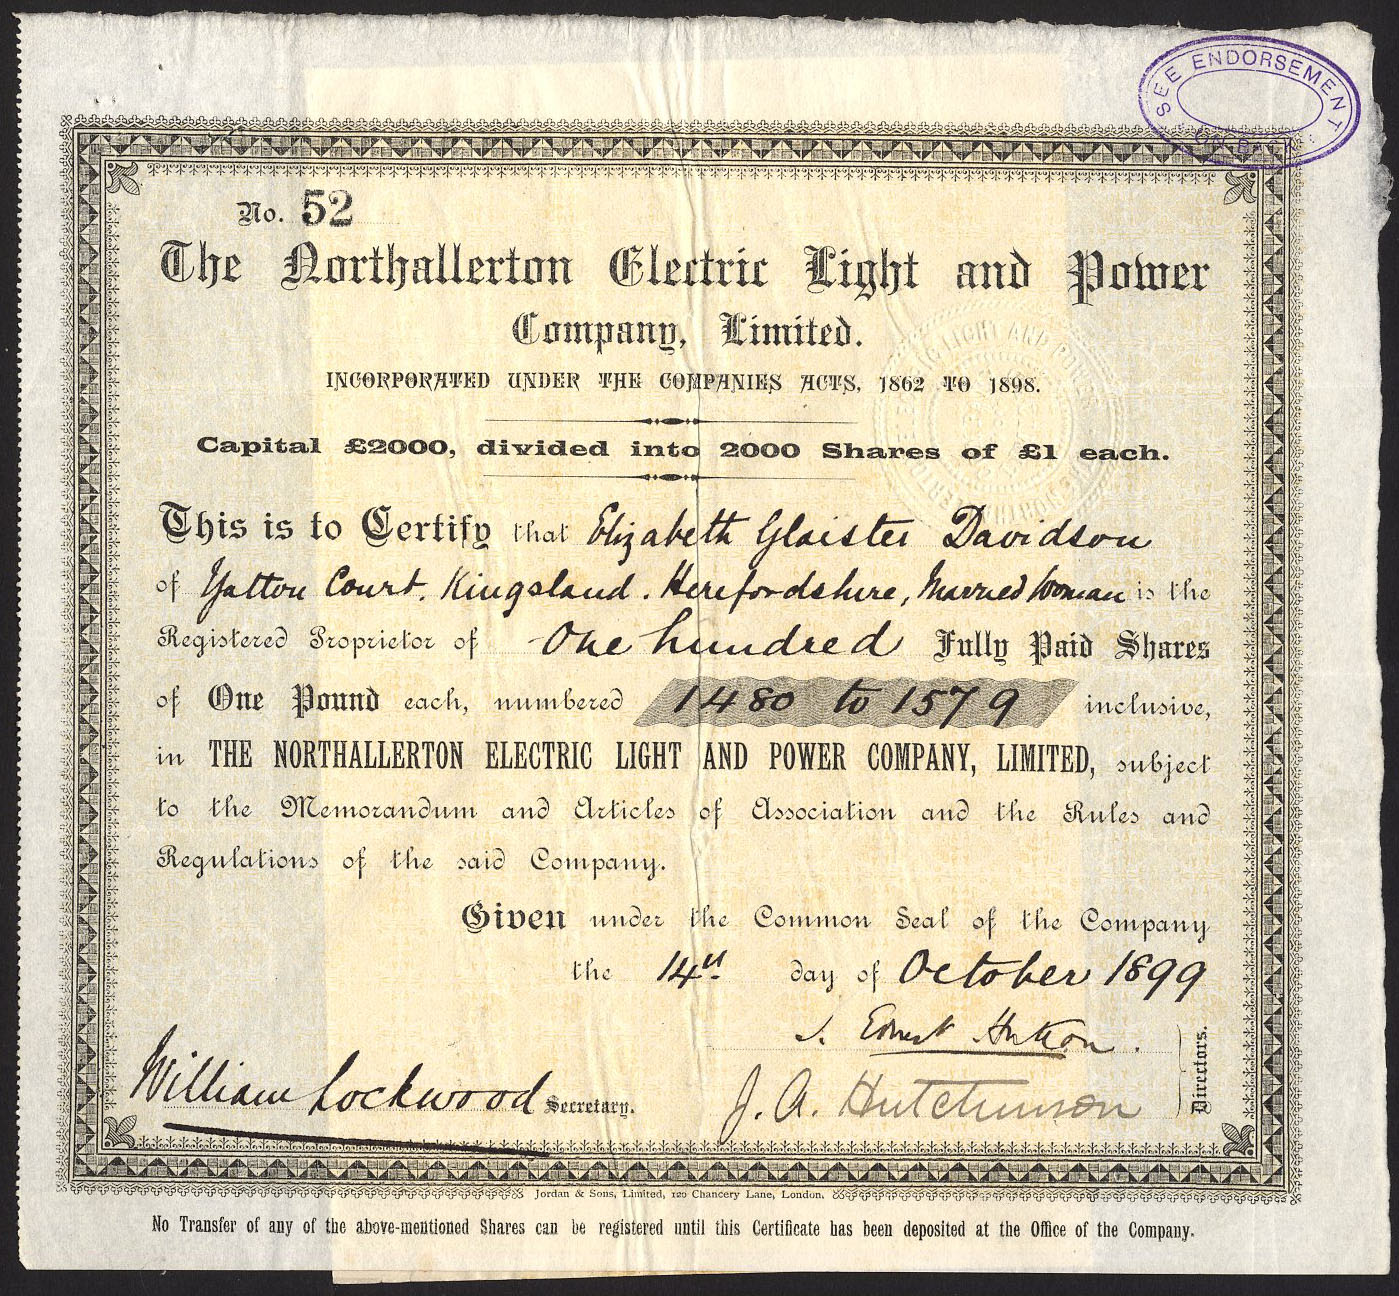 SEE ENDORSEMENT
No. 52
The Northallerton Electric Light and Power
Company, Limited.
INCORPORATED UNDER THE COMPANIES ACTS, 1862 TO 1898.
Capital £2000, divided into 2000 Shares of £1 each.
This is to Certify that Elizabeth Glaister Davidson
of Yatton Court. Kingsland. Herefordshire, Married Woman is the
Registered Proprietor of One hundred Fully Paid Shares
of One Pound each, numbered 1480 to 1579 inclusive,
in THE NORTHALLERTON ELECTRIC LIGHT AND POWER COMPANY, LIMITED, subject
to the Memorandum and Articles of Association and the Rules and
Regulations of the said Company.
Given under the Common Seal of the Company
the 14th day of October 1899
J. Ernest Hutton.
William Lockwood Secretary. J. A. Hutchinson Directors.
Jordan & Sons, Limited, 120 Chancery Lane, London.
No Transfer of any of the above-mentioned Shares can be registered until this Certificate has been deposited at the Office of the Company.